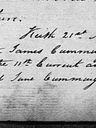 Keith 21st
James Cumm
the 11th Current a
Jane Cumming